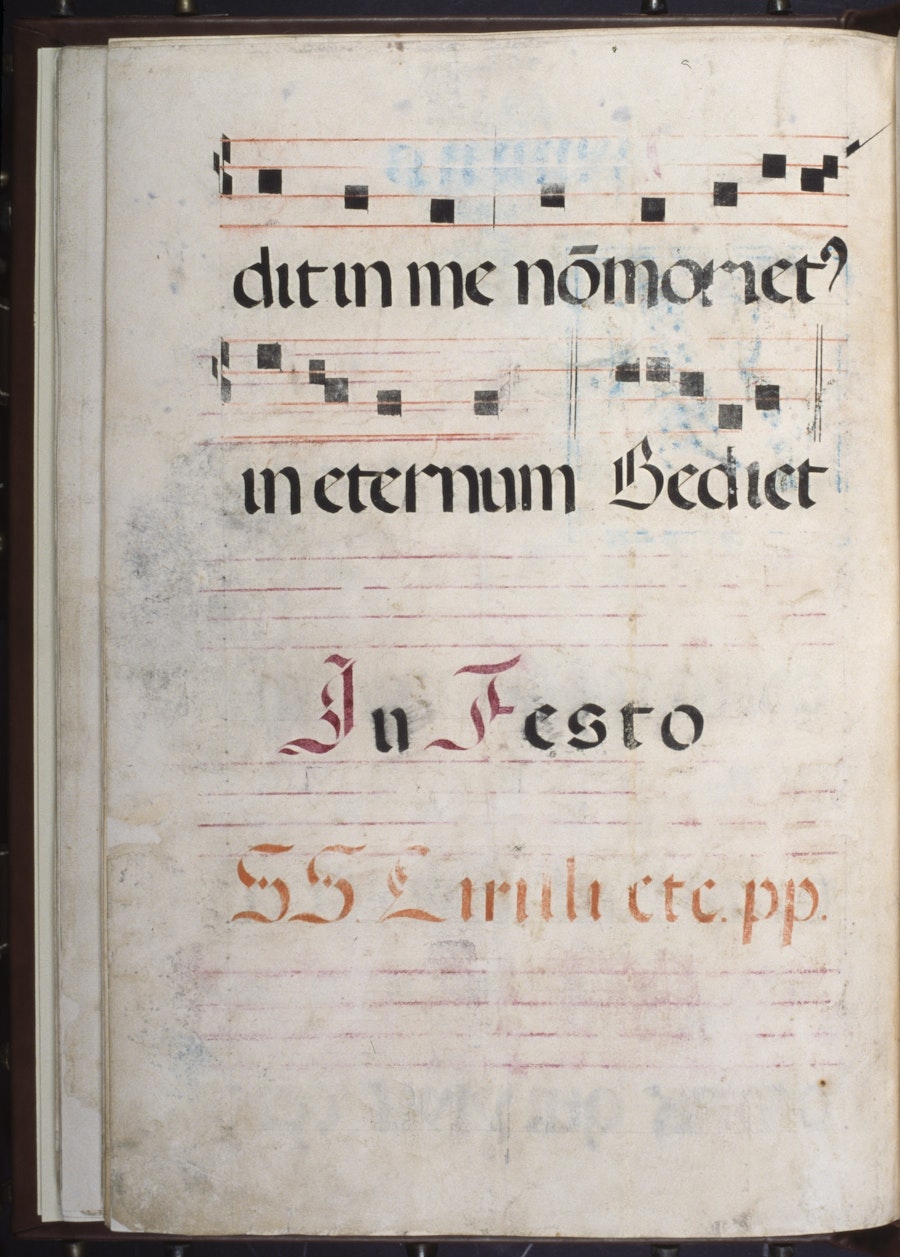 dit in me nō morietꝰ
in eternum Bedict
In Festo
SS Cirilli etc. pp.